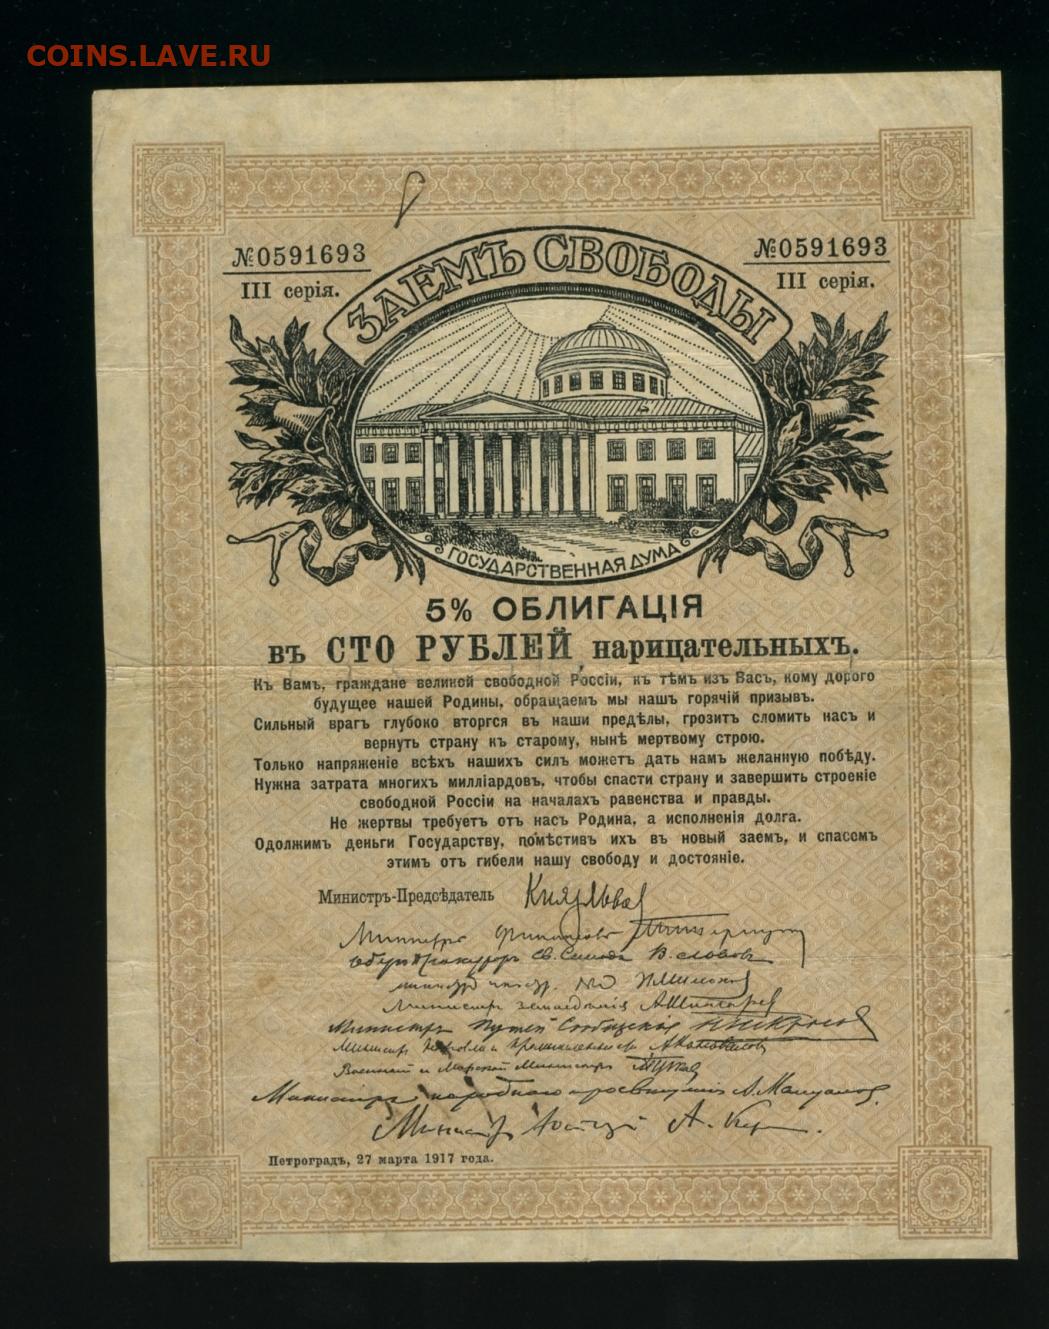 COINS.LAVE.RU
№0591693
III серія.
№0591693
III серія.
ЗАЕМЪ СВОБОДЫ
ГОСУДАРСТВЕННАЯ ДУМА
5% ОБЛИГАЦІЯ
въ СТО РУБЛЕЙ нарицательныхъ.
Къ Вамъ, граждане великой свободной Россіи, къ тѣмъ изъ Васъ, кому дорого
будущее нашей Родины, обращаемъ мы нашъ горячій призывъ.
Сильный врагъ глубоко вторгся въ наши предѣлы, грозитъ сломить насъ и
вернуть страну къ старому, нынѣ мертвому строю.
Только напряженіе всѣхъ нашихъ силъ можетъ дать намъ желанную побѣду.
Нужна затрата многихъ милліардовъ, чтобы спасти страну и завершить строеніе
свободной Россіи на началахъ равенства и правды.
Не жертвы требуетъ отъ насъ Родина, а исполненія долга.
Одолжимъ деньги Государству, помѣстивъ ихъ въ новый заемъ, и спасемъ
этимъ отъ гибели нашу свободу и достояніе.
Министръ-Предсѣдатель Князь Львов
Министръ Финансовъ
Оберъ Прокуроръ Св. Синода В. Львовъ
Министръ земледѣлія А. Шингаревъ
Министръ Путей Сообщенія
Министръ Торговли и Промышленности А. Коноваловъ
Военный и Морской Министръ
Министръ народнаго просвещенія А. Мануиловъ.
Министръ Юстиціи А. Кер
Петроградъ, 27 марта 1917 года.